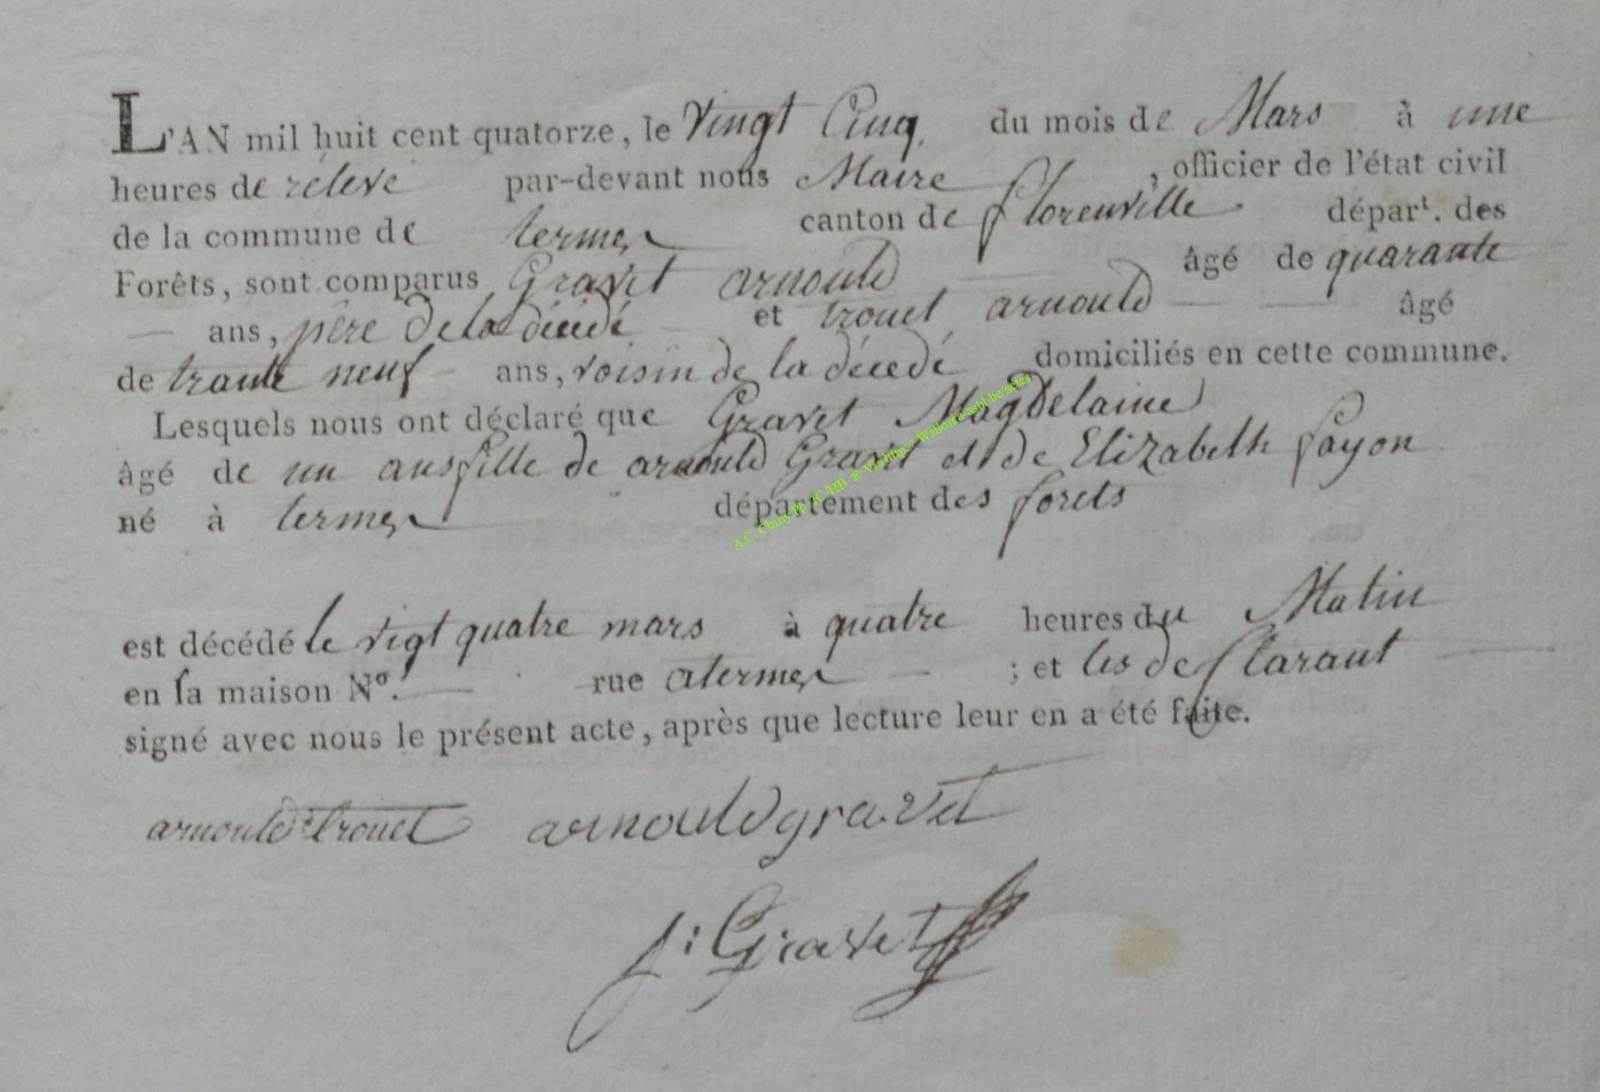 L'AN mil huit cent quatorze, le vingt Cinq du mois de Mars à une
heures de releve par-devant nous Maire, officier de l'état civil
de la commune de termes canton de florenville départ. des
Forêts, sont comparus Gravet arnould âgé de quarante
— ans, père de la décédé et trouet arnould — — âgé
de trante neuf ans, voisin de la décedé domiciliés en cette commune.
Lesquels nous ont déclaré que Gravet Magdelaine
âgé de un ans fille de arnould Gravet et de Elizabeth fayon
né à termes département des forets
est décédé le vigt quatre mars à quatre heures du Matin
en sa maison No. — rue a termes — ; et les de Claraut —
signé avec nous le présent acte, après que lecture leur en a été faite.
arnould trouet arnould gravet
j: Gravet